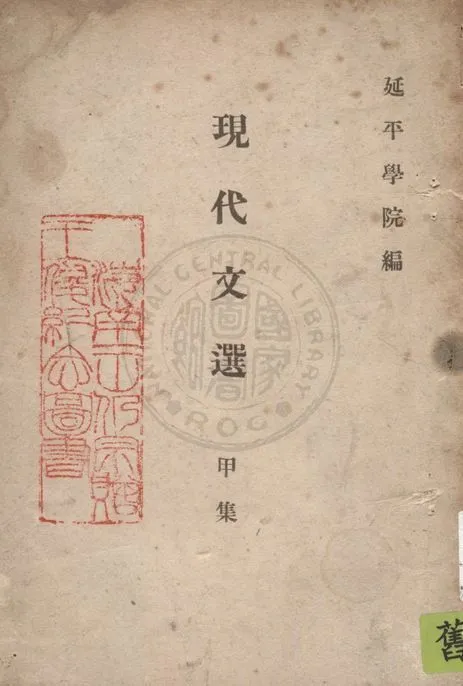 延平學院編
現代文選
甲集
NATIONAL CENTRAL LIBRARY
ROC
國家圖書館
舊